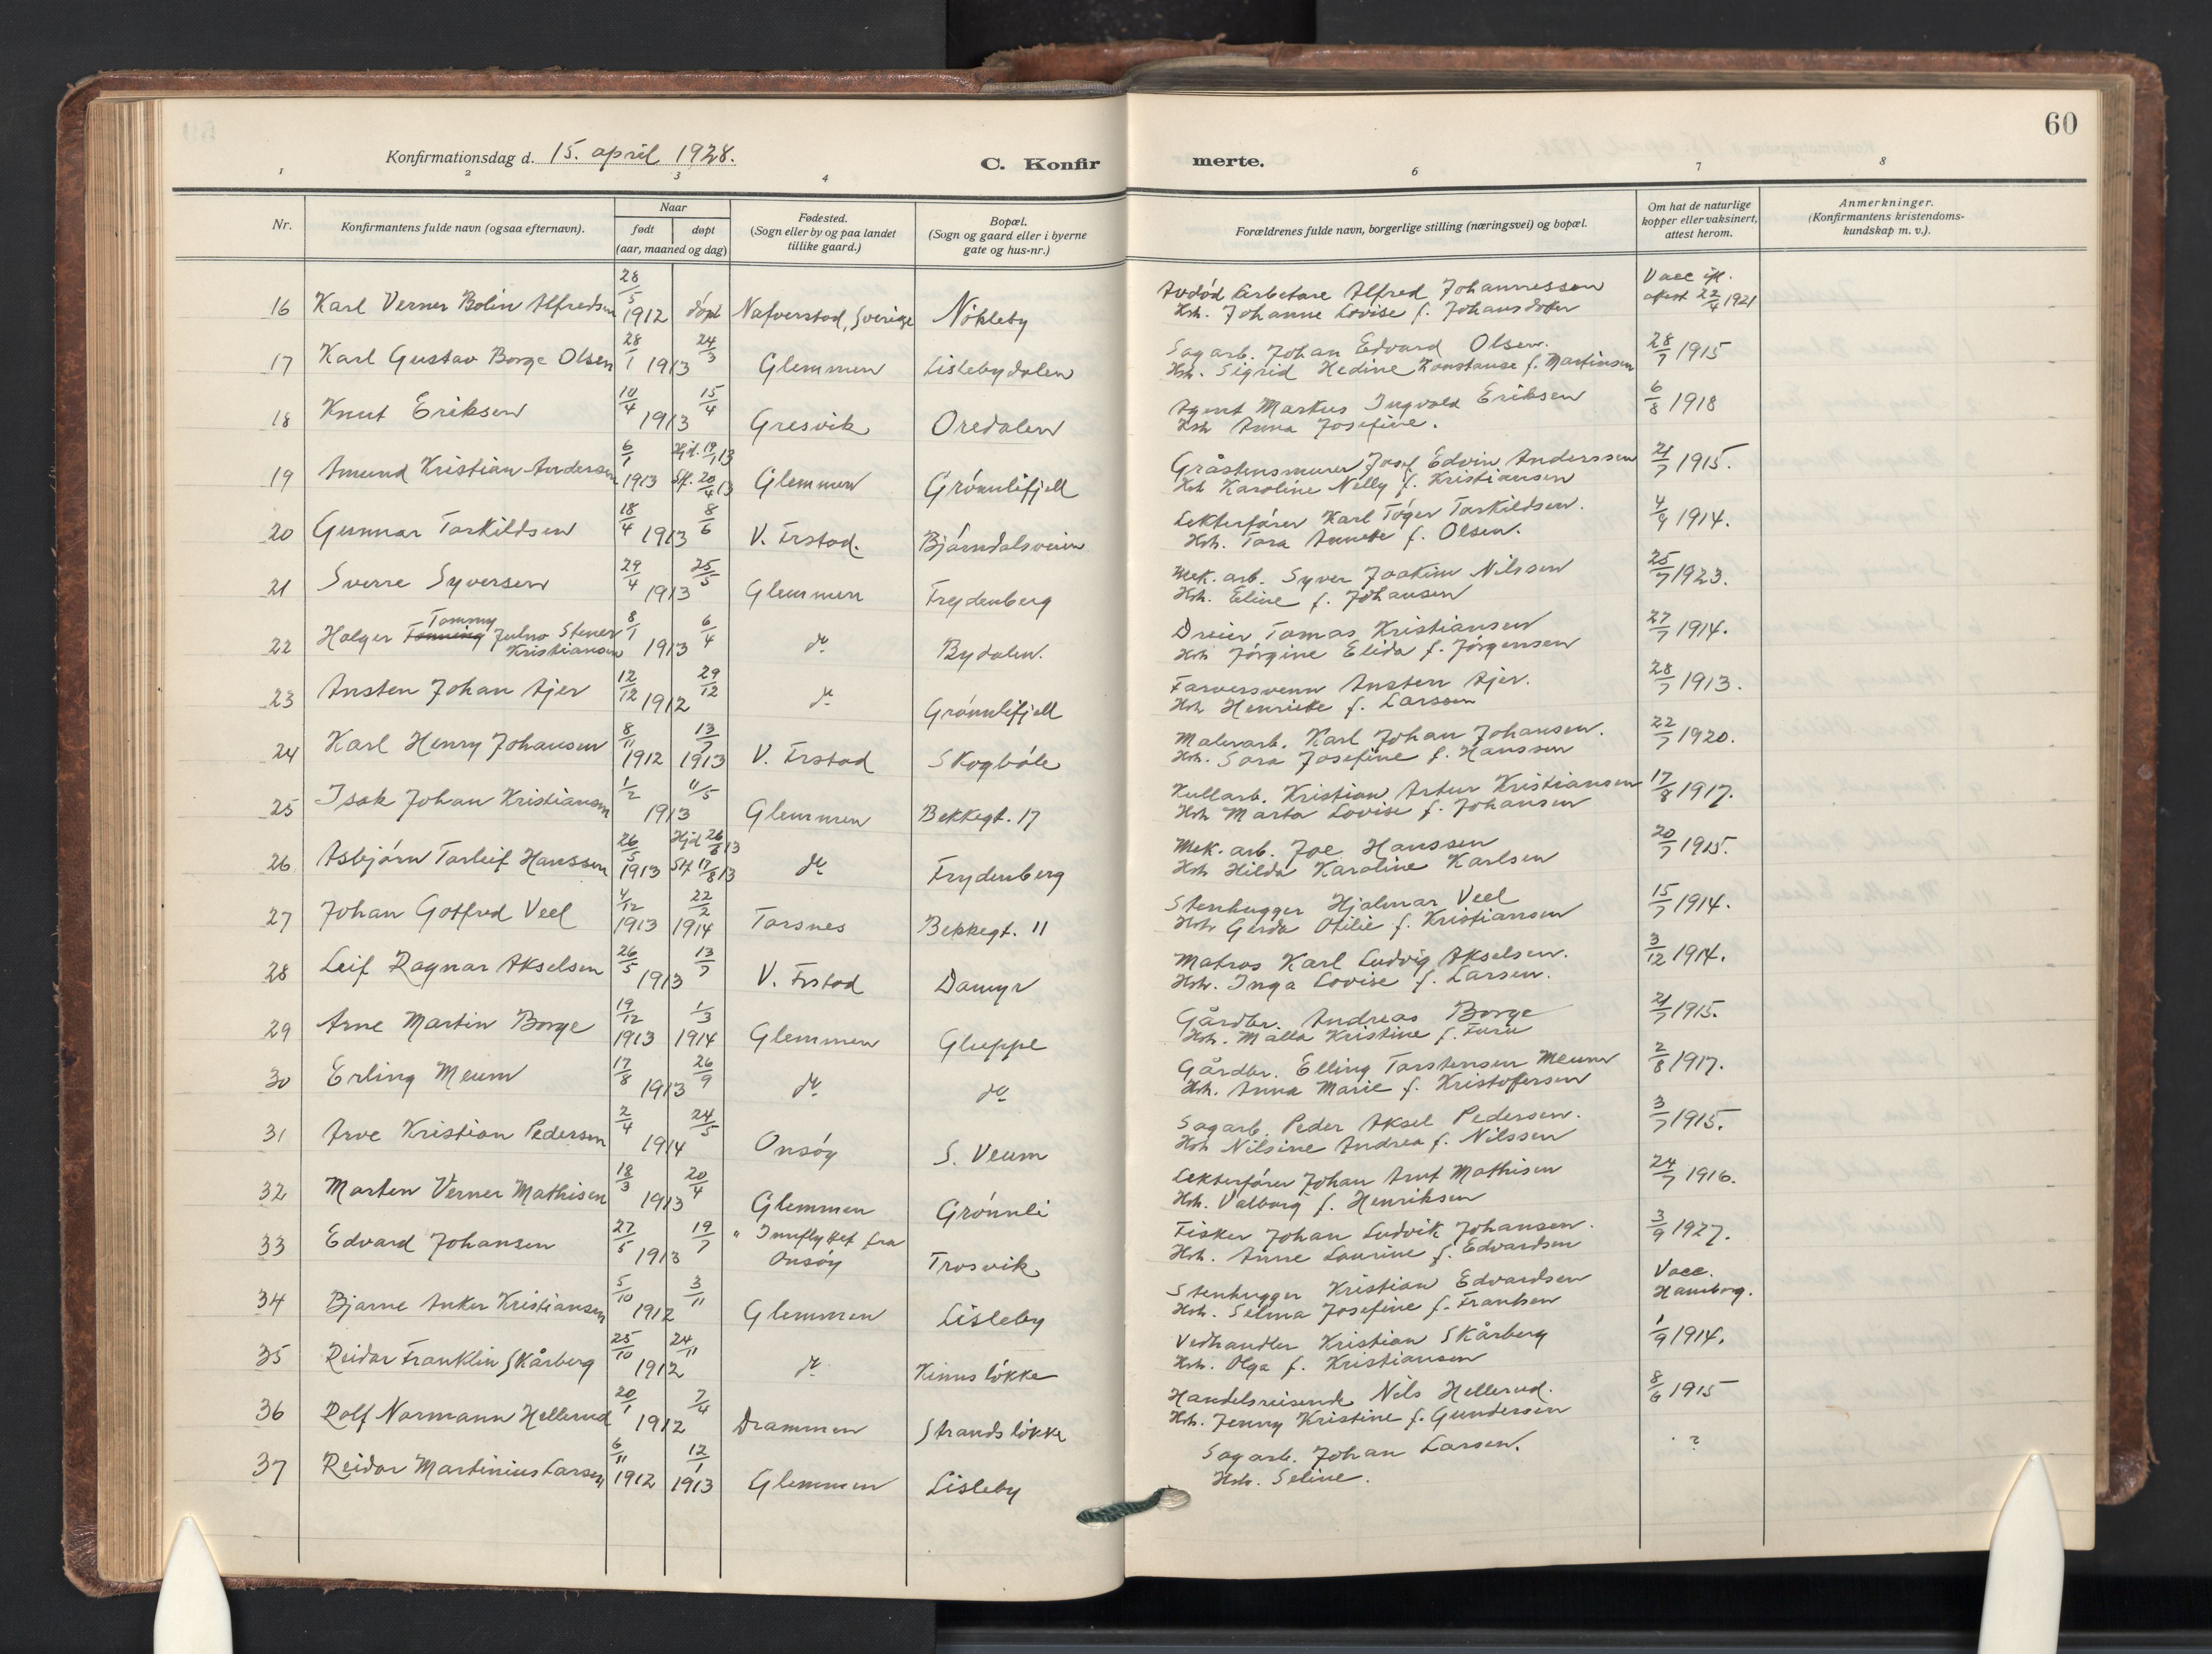 60
Konfirmationsdag d. 15. april 1928.
C. Konfirmerte.
1 2 3 4 6 7 8
Nr.
Konfirmantens fulde navn (ogsaa efternavn).
Naar
født
døpt
(aar, maaned og dag)
Fødested.
(Sogn eller by og paa landet
tillike gaard.)
Bopæl.
(Sogn og gaard eller i byerne
gate og hus-nr.)
Forældrenes fulde navn, borgerlige stilling (næringsvei) og bopæl.
Om hat de naturlige
kopper eller vaksinert,
attest herom.
Anmerkninger.
(Konfirmantens kristendoms-
kundskap m. v.).
16 Karl Verner Bolin Alfredsen 28/5 1912 döpt Nafverstad, Sverige Nökleby Avdöd Arbetare Alfred Johannesson Vacc ifl.
Hstr. Johanne Lovise f. Johansdotter attest 22/4 1921
17 Karl Gustav Borge Olsen 28/1 1913 24/3 Glemmen Lislebydalen Sagarb. Johan Edvard Olsen. 28/7 1915
Hstr. Sigrid Hedine Konstanse f. Martinsen
18 Knut Eriksen 10/4 1913 15/4 Gresvik Oredalen Agent Markus Ingvald Eriksen 6/8 1918
Hstr Anna Josefine.
19 Amund Kristian Andersen 6/1 1913 Hjd. 19/1 13 Stf. 20/4 13 Glemmen Grönnlifjell Gråstensmurer Josef Edvin Anderssen 21/7 1915.
Hstr Karoline Nelly f. Kristiansen
20 Gunnar Torkildsen 18/4 1913 8/6 V. Frstad. Bjørndalsveien Lekterförer Karl Töger Torkildsen. 4/9 1914.
Hstr. Tora Annette f. Olsen.
21 Sverre Syversen 29/4 1913 25/5 Glemmen Frydenberg Mek. arb. Syver Joakim Nilssen 25/7 1923.
Hstr. Eline f. Johansen
22 Holger Tommy Julno Stener Kristiansen 8/1 1913 6/4 do Bydalen. Dreier Tomas Kristiansen 27/7 1914.
Hstr Jörgine Elida f. Jörgensen
23 Ansten Johan Ajer 12/12 1912 29/12 do Grönnlifjell Farversvenn Ansten Ajer. 28/7 1913.
Hstr Henriette f. Larssen
24 Karl Henry Johansen 8/11 1912 13/7 1913 V. Frstad Skogböle Malerarb. Karl Johan Johansen. 22/7 1920.
Hstr. Sara Josefine f. Hanssen
25 Isak Johan Kristiansen 1/2 1913 11/5 Glemmen Bekkegt. 17 Kullarb. Kristian Artur Kristiansen 17/8 1917.
Hstr Marta Lovise f. Johansen
26 Asbjørn Torleif Hanssen 26/5 1913 Hjd 26/6 13 Stf 17/8 13 do Frydenberg Mek. arb. Joe Hanssen 20/7 1915.
Hstr Hilda Karoline Karlsen
27 Johan Gotfred Veel 4/12 1913 22/2 1914 Torsnes Bekkegt. 11 Stenhugger Hjalmar Veel 15/7 1914.
Hstr Gerda Otilie f. Kristiansen
28 Leif Ragnar Akselsen 26/5 1913 13/7 V. Frstad Damyr Matros Karl Ludvig Akselsen. 3/12 1914.
Hstr. Inga Lovise f. Larsen.
29 Arne Martin Borge 19/12 1913 1/3 1914 Glemmen Gluppe Gårdbr. Andreas Borge 21/7 1915.
Hstr. Malla Kristine f. Furu
30 Erling Meum 17/8 1913 26/9 do do Gårdbr. Elling Torstensen Meum 2/8 1917.
Hstr. Anna Marie f. Kristofersen
31 Arve Kristian Pedersen 2/4 1914 24/5 Onsöy S. Veum Sagarb. Peder Aksel Pedersen. 3/7 1915.
Hstr Nilsine Andrea f. Nilssen
32 Morten Verner Mathisen 18/3 1913 20/4 Glemmen Grönnli Lekterförer Johan Arnt Mathisen 24/7 1916.
Hstr. Valborg f. Henriksen
33 Edvard Johansen 27/5 1913 19/7 " Innflyttet fra Onsöy Trosvik Fisker Johan Ludvik Johansen. 3/9 1927.
Hstr. Anne Laurine f. Edvardsen
34 Bjarne Anker Kristiansen 5/10 1912 3/11 Glemmen Lisleby Stenhugger Kristian Edvardsen Vacc.
Hstr. Selma Josefine f. Frantsen Hamborg.
35 Reidar Franklin Skårberg 25/10 1912 24/11 do Kinns løkke Vedhandler Kristian Skårberg 1/9 1914.
Hstr. Olga f. Kristiansen
36 Rolf Normann Hellerud 20/1 1912 7/4 Drammen Strandsløkka Handelsreisende Nils Hellerud. 8/6 1915
Hstr. Jenny Kristine f. Gundersen
37 Reidar Martinius Larsen 6/11 1912 12/1 1913 Glemmen Lisleby Sagarb. Johan Larsen. ?
Hstr. Seline.